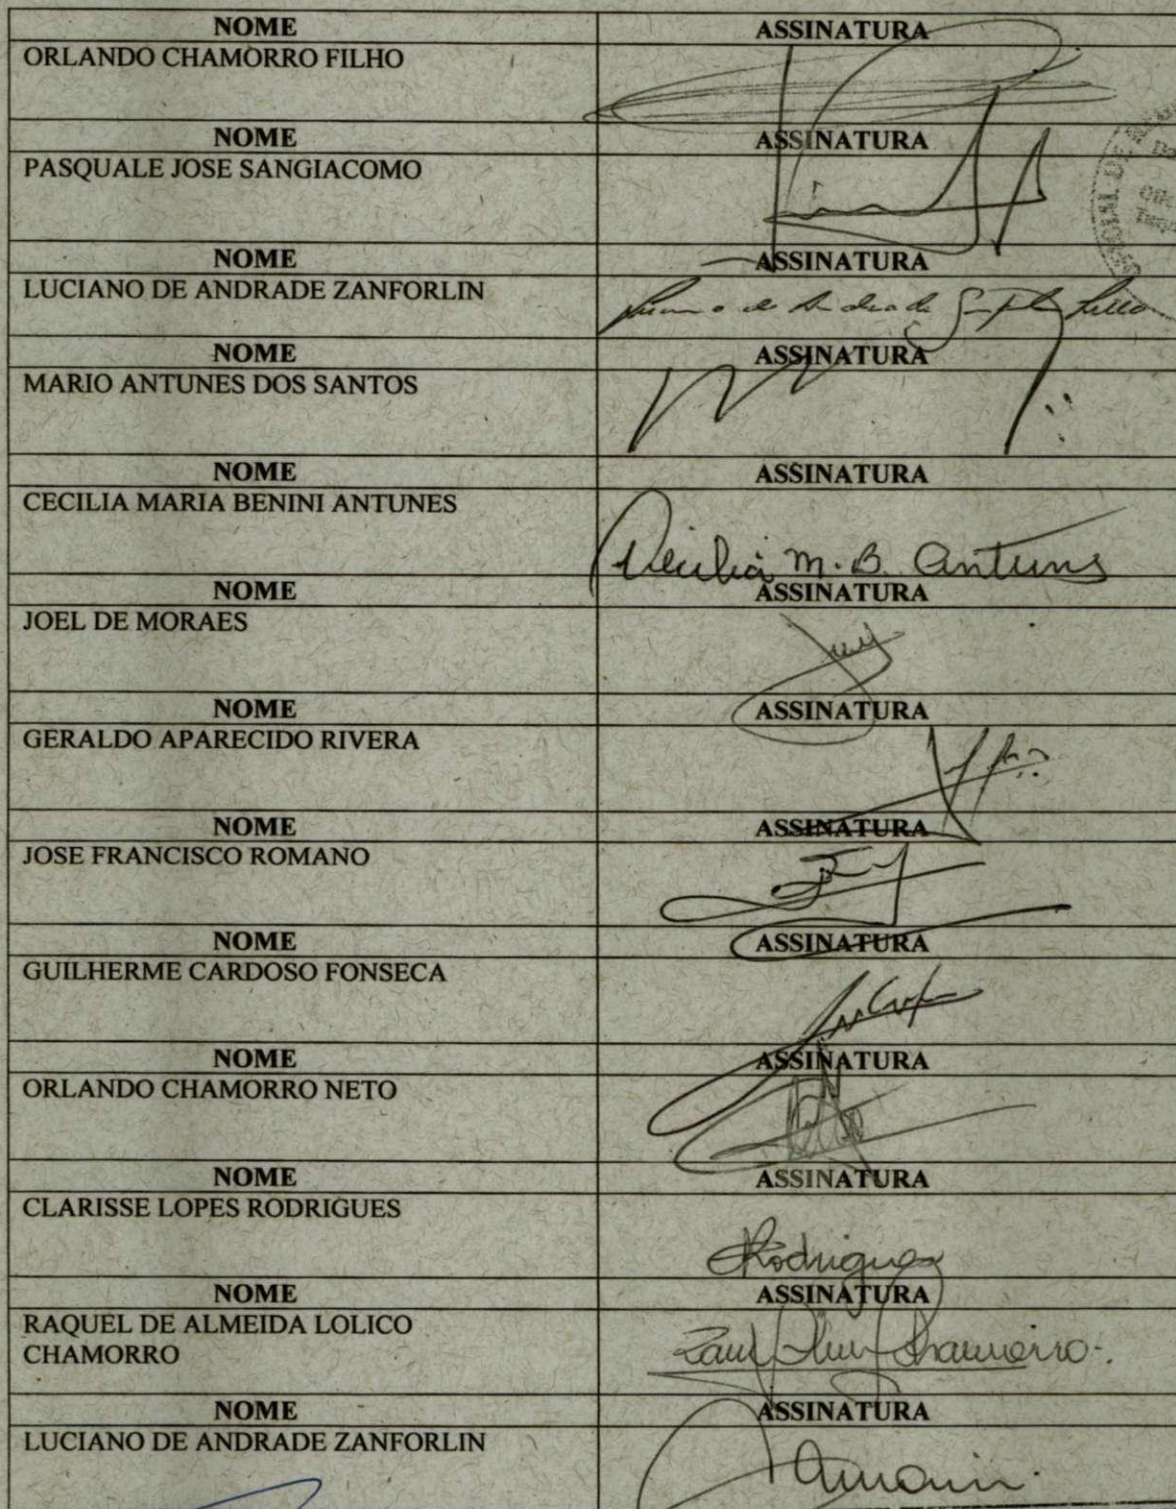 NOME ASSINATURA
ORLANDO CHAMORRO FILHO
NOME ASSINATURA
PASQUALE JOSE SANGIACOMO
NOME ASSINATURA
LUCIANO DE ANDRADE ZANFORLIN
NOME ASSINATURA
MARIO ANTUNES DOS SANTOS
NOME ASSINATURA
CECILIA MARIA BENINI ANTUNES
Cecilia M. B. Antunes
NOME ASSINATURA
JOEL DE MORAES
NOME ASSINATURA
GERALDO APARECIDO RIVERA
NOME ASSINATURA
JOSE FRANCISCO ROMANO
NOME ASSINATURA
GUILHERME CARDOSO FONSECA
NOME ASSINATURA
ORLANDO CHAMORRO NETO
NOME ASSINATURA
CLARISSE LOPES RODRIGUES
Rodrigues
NOME ASSINATURA
RAQUEL DE ALMEIDA LOLICO
CHAMORRO
Chamorro
NOME ASSINATURA
LUCIANO DE ANDRADE ZANFORLIN